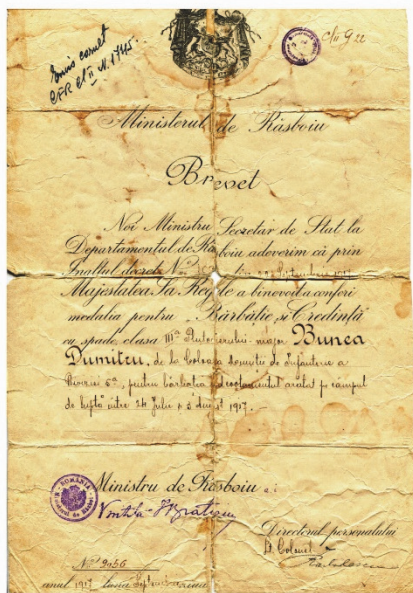 Emis carnet
CFR Cl. II N. 1745.
Ministerul de Răsboiu
Brevet
Noi Ministru Secretar de Stat la
Departamentul de Răsboiu adeverim că prin
Înaltul decret No.
Majestatea Sa Regele a binevoit a conferi
medalia pentru „Bărbăție și Credință”
cu spade clasa III-a Plutonierului major Bunea
Dumitru, de la Coloana de Infanterie a
Diviziei 6a, pentru bărbăția și devotamentul arătat pe câmpul
de luptă între 24 Iulie și 1917.
ROMÂNIA
Ministru de Răsboiu
Directorul personalului
Lt. Colonel
No. 9056
anul 1917 luna Septembrie